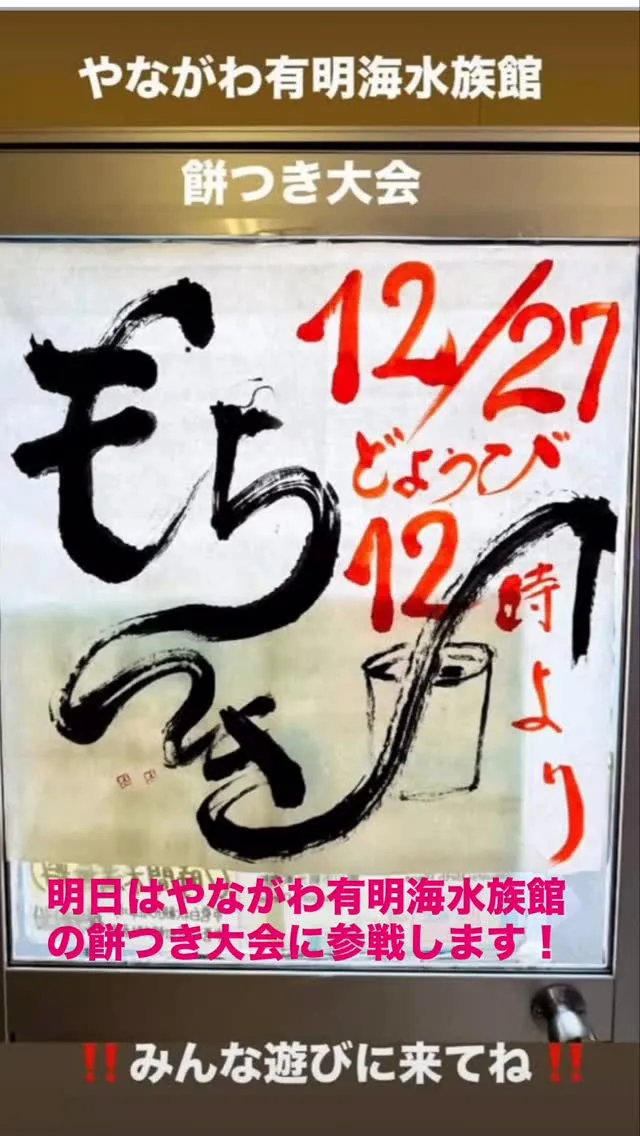 やながわ有明海水族館
餅つき大会
12/27
どようび
12時より
もち
つき
明日はやながわ有明海水族館
の餅つき大会に参戦します！
‼️みんな遊びに来てね‼️